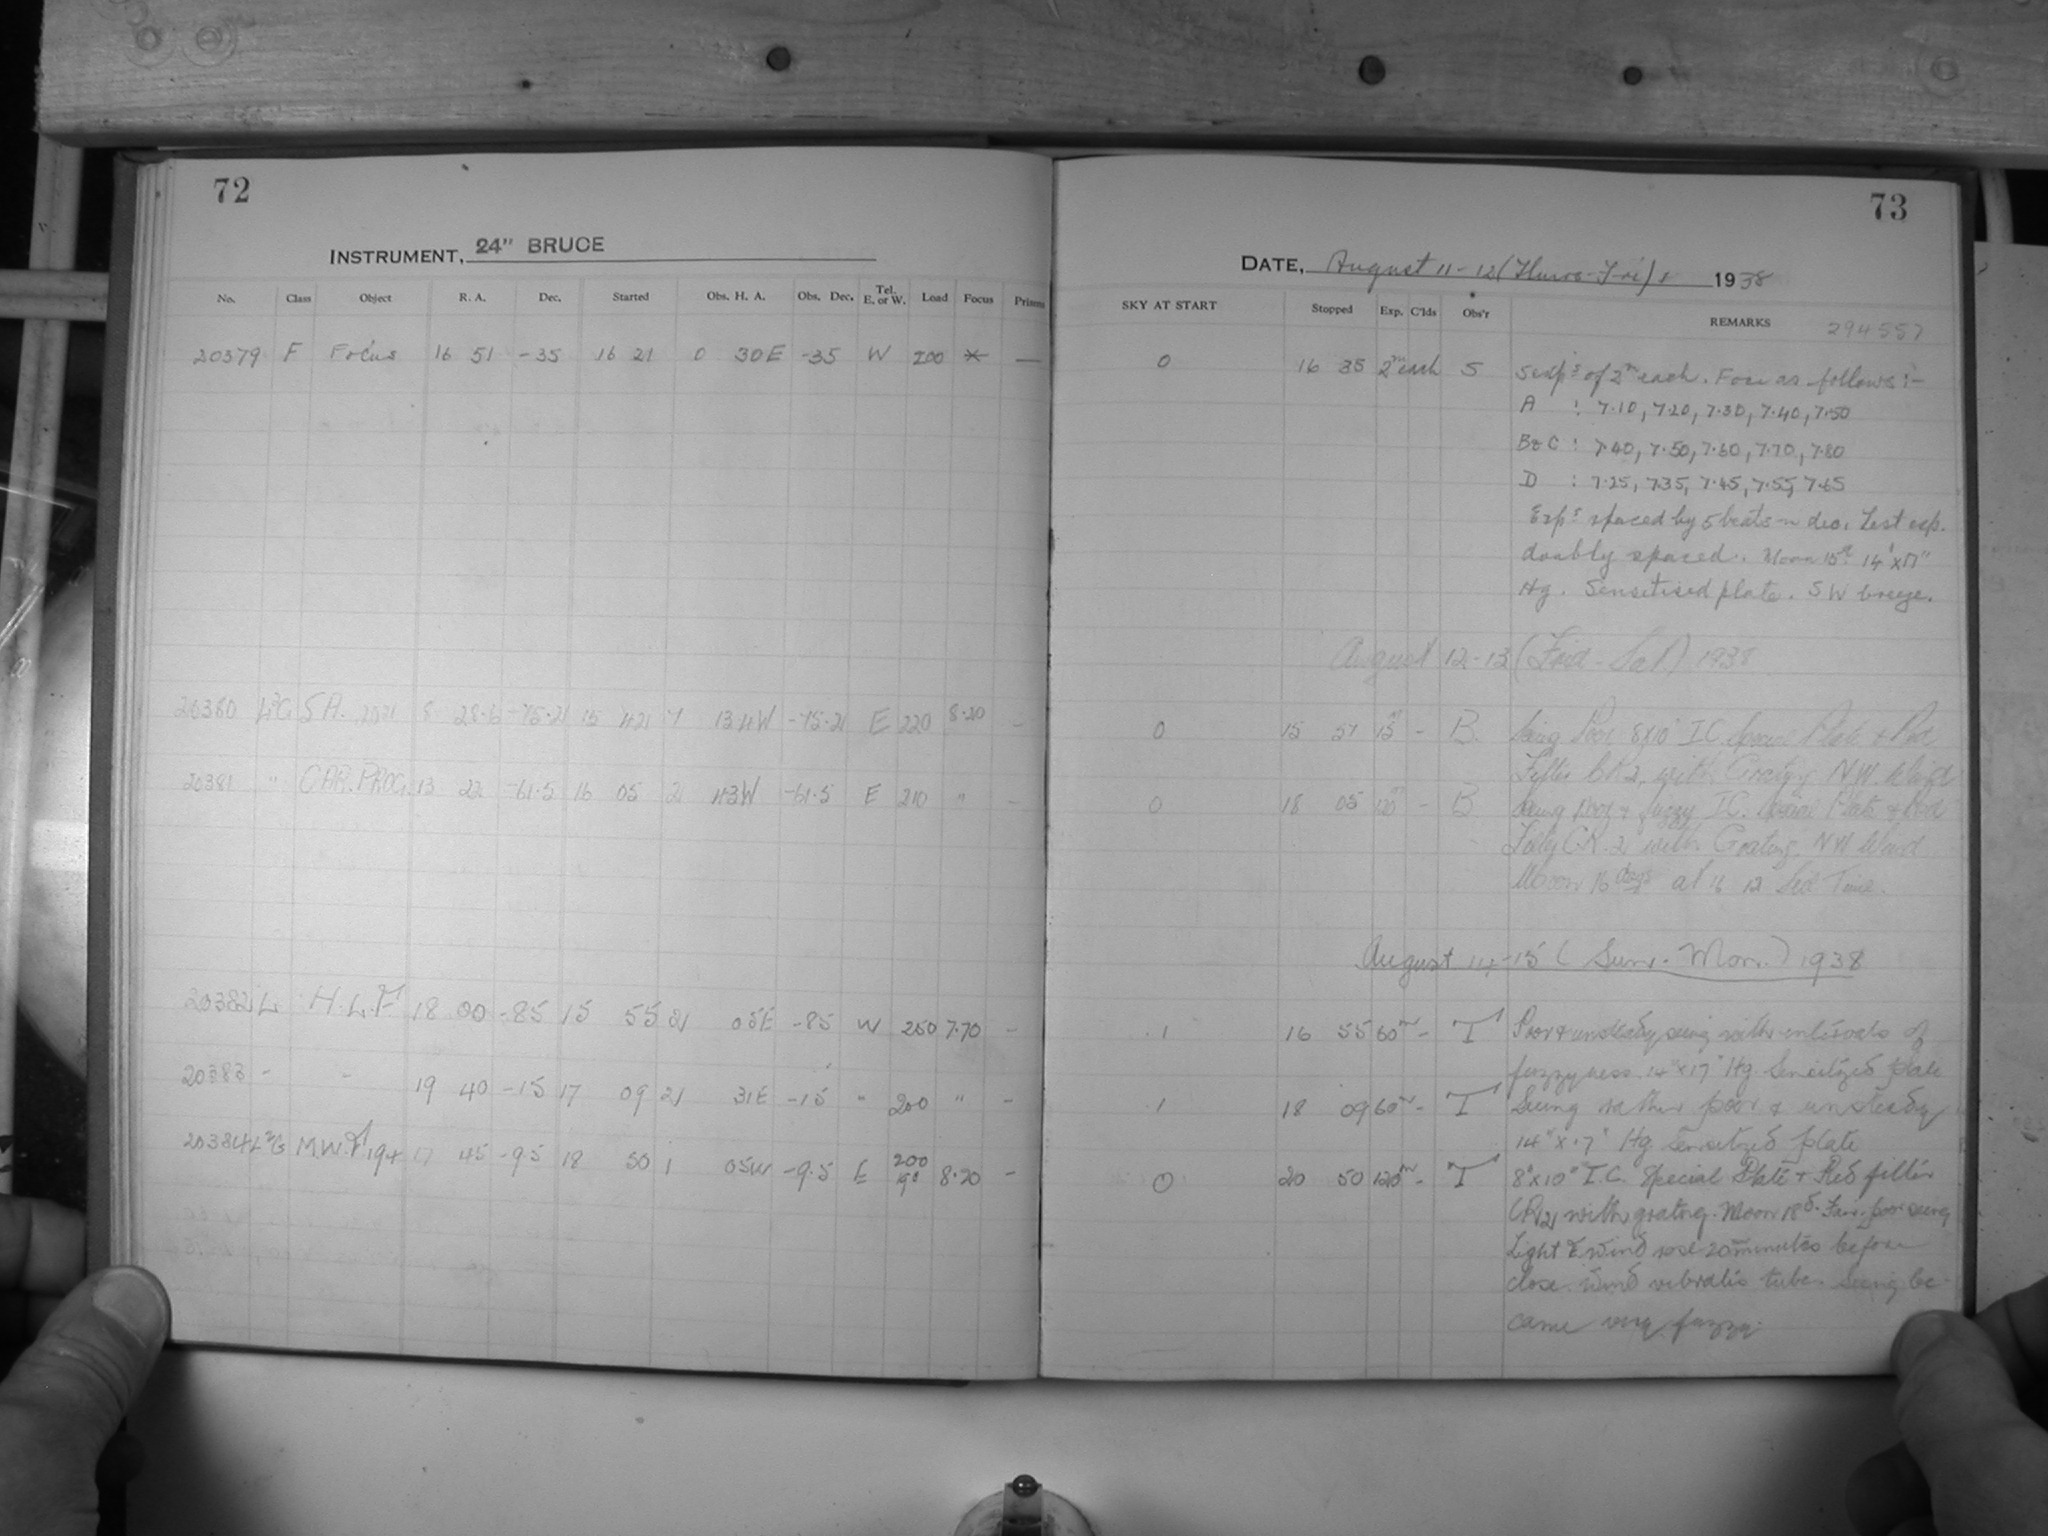 72
INSTRUMENT, 24" BRUCE
No. Class Object R. A. Dec. Started Obs. H. A. Obs. Dec. Tel. E. or W. Load Focus Prisms
20379 F Focus 16 51 -35 16 21 0 30E -35 W 200 —
20380 S A. 8 28.6 -75. 15 -75. E 220 8.20 -
20381 " CAR. PROG. 13 22 -61.5 16 05 43W -61.5 E 210 " -
20382 L H.L.F 18 00 -85 15 55 05E -85 W 250 7.70 -
20383 - - 19 40 -15 17 09 31E -15 " 200 " -
20384 M.W.F. 194 17 45 -9.5 18 50 1 05W -9.5 E 200 190 8.20 -
73
DATE, August 11-12 (Thurs-Fri) 1938
SKY AT START Stopped Exp. C'lds Obs'r REMARKS 294557
0 16 35 2m each S 5 exps of 2m each. Foci as follows:-
A : 7.10, 7.20, 7.30, 7.40, 7.50
B & C : 7.40, 7.50, 7.60, 7.70, 7.80
D : 7.25, 7.35, 7.45, 7.55, 7.65
Exps spaced by 5 beats in dec. Last exp.
doubly spaced. Moon 15d 14" x 17"
Hg. Sensitised plate. SW breeze.
August 12-13 (Frid-Sat) 1938
0 15 57 15m - B. Seeing Poor 8x10" I.C. Special Plate & Red
Filter with Grating N.W. Wind
0 18 05 120m - B Seeing poor & fuzzy I.C. Special Plate & Red
with Grating. NW Wind
Moon 16 days at 16 12 Sid Time.
August 14-15 (Sun.-Mon.) 1938
1 16 55 60m - T Poor & unsteady seeing with intervals of
fuzzyness. 14" x 17" Hg. Sensitized plate
1 18 09 60m - T Seeing rather poor & unsteady
14" x 17" Hg Sensitized plate
0 20 50 120m - T 8" x 10" I.C. Special Plate & Red filter
with grating. Moon 18d. Fair-poor seeing
Light E wind rose 20 minutes before
close. Wind vibrates tube. Seeing be-
came very fuzzy.